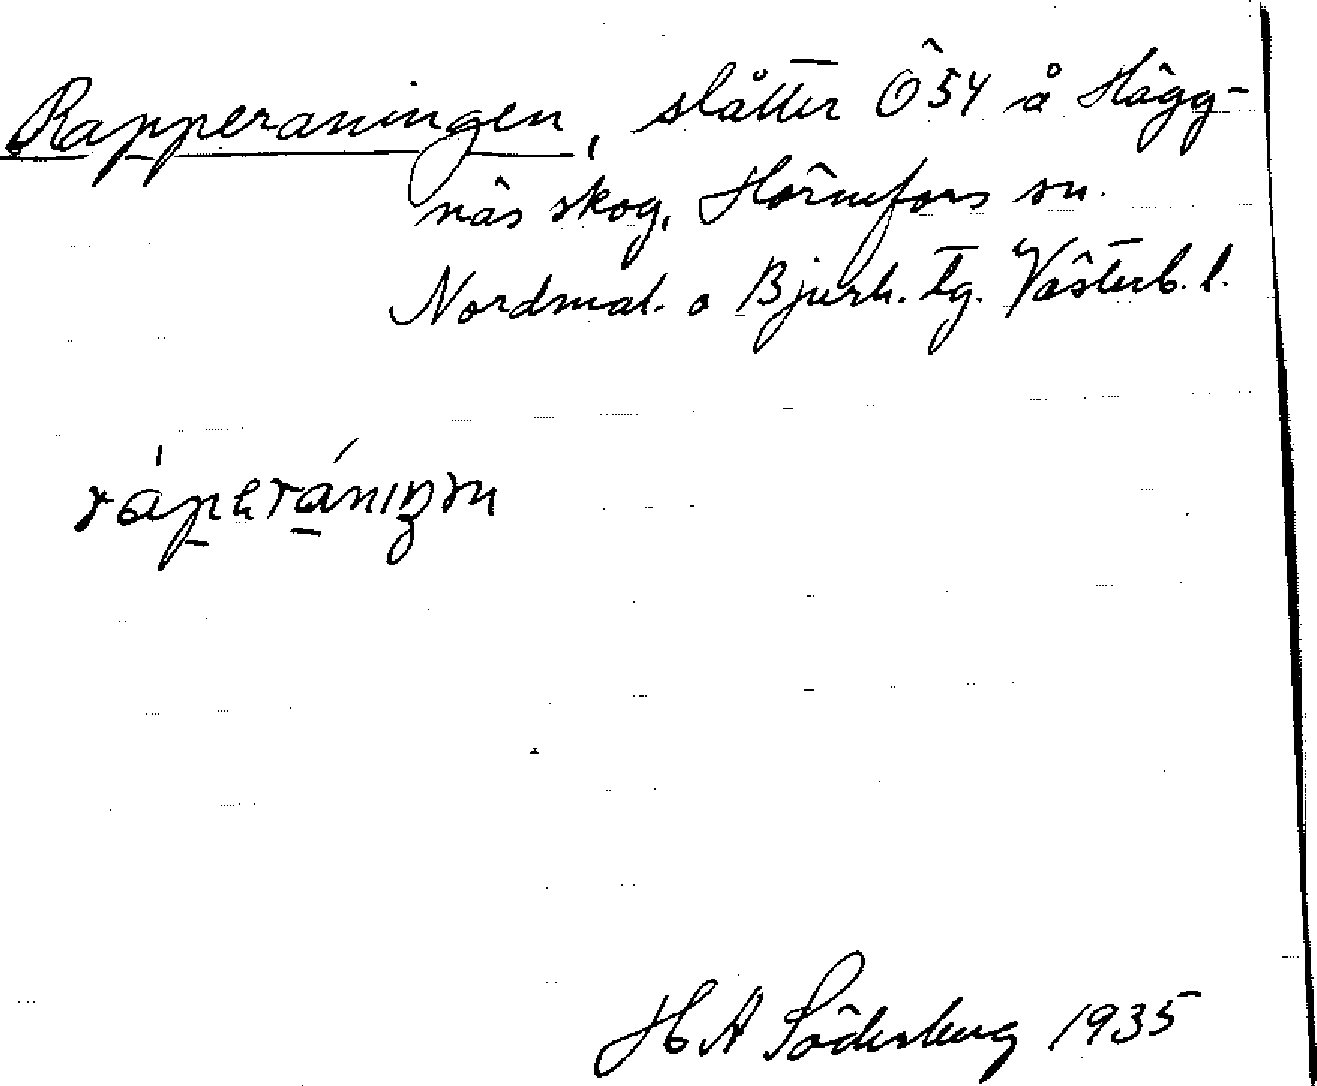 Rapperaningen, slåtter Ö54 å Hägg-
näs skog, Hörnefors sn.
Nordmal. o Bjurh. tg. Västerb. l.
H A Söderberg 1935